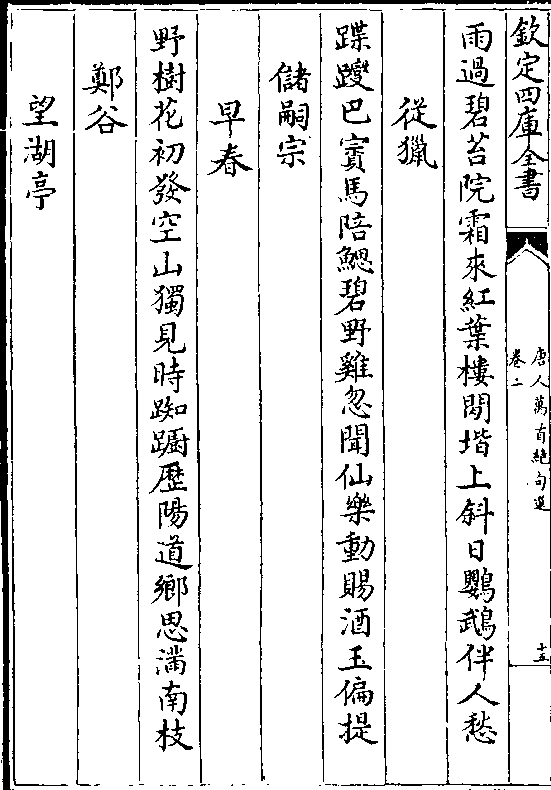 欽定四庫全書
唐人萬首絶句選
卷二
十五
雨過碧苔院霜來紅葉樓閒堦上斜日鸚鵡伴人愁
從獵
蹀躞巴賨馬陪鰓碧野雞忽聞仙樂動賜酒玉偏提
儲嗣宗
早春
野樹花初發空山獨見時踟蹰歷陽道鄉思滿南枝
鄭谷
望湖亭